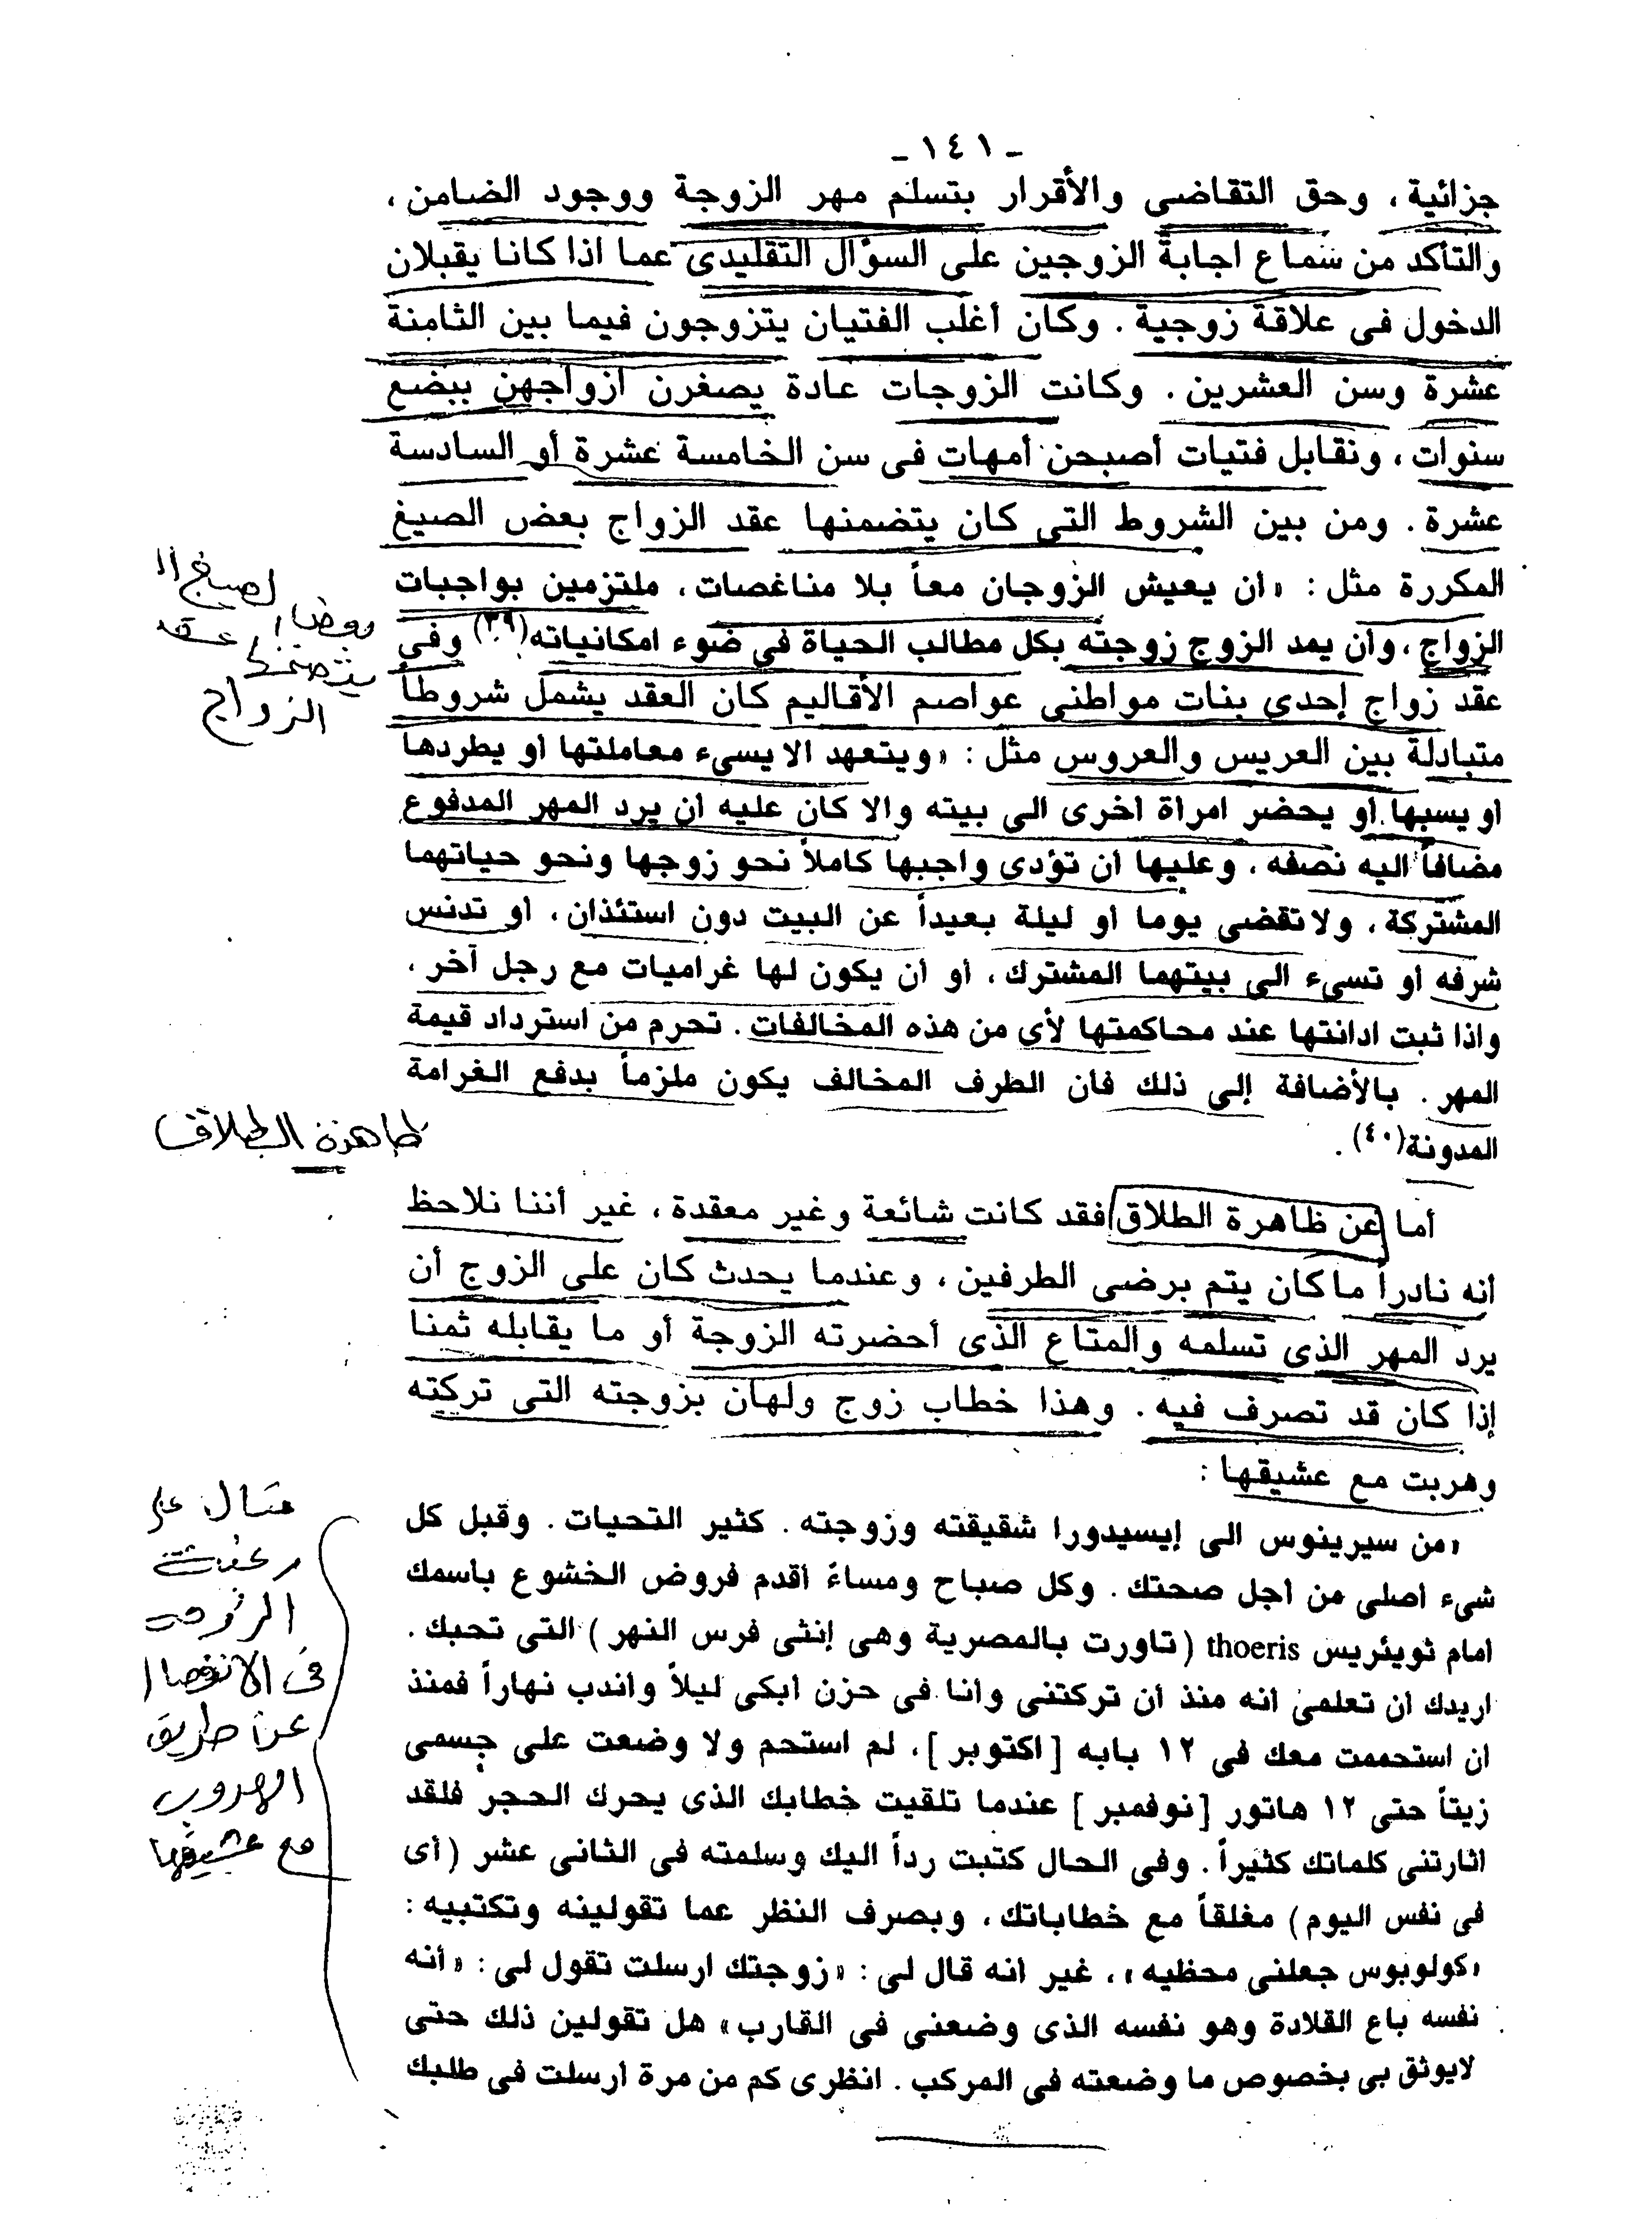 - ١٤١ -
جزائية ، وحق التقاضى والأقرار بتسلم مهر الزوجة ووجود الضامن ،
والتأكد من سماع اجابة الزوجين على السؤال التقليدى عما اذا كانا يقبلان
الدخول فى علاقة زوجية . وكان أغلب الفتيان يتزوجون فيما بين الثامنة
عشرة وسن العشرين . وكانت الزوجات عادة يصغرن ازواجهن ببضع
سنوات ، ونقابل فتيات أصبحن أمهات فى سن الخامسة عشرة أو السادسة
عشرة . ومن بين الشروط التى كان يتضمنها عقد الزواج بعض الصيغ
المكررة مثل : « أن يعيش الزوجان معاً بلا مناغصات ، ملتزمين بواجبات
الزواج ، وأن يمد الزوج زوجته بكل مطالب الحياة فى ضوء امكانياته(٣٩) وفى
عقد زواج إحدى بنات مواطنى عواصم الأقاليم كان العقد يشمل شروطاً
متبادلة بين العريس والعروس مثل : « ويتعهد الا يسىء معاملتها أو يطردها
او يسبها أو يحضر امراة اخرى الى بيته والا كان عليه أن يرد المهر المدفوع
مضافاً اليه نصفه ، وعليها أن تؤدى واجبها كاملاً نحو زوجها ونحو حياتهما
المشتركة ، ولا تقضى يوما أو ليلة بعيداً عن البيت دون استئذان ، أو تدنس
شرفه أو تسىء الى بيتهما المشترك ، أو أن يكون لها غراميات مع رجل آخر ،
واذا ثبت ادانتها عند محاكمتها لأى من هذه المخالفات . تحرم من استرداد قيمة
المهر . بالأضافة إلى ذلك فان الطرف المخالف يكون ملزماً بدفع الغرامة
المدونة(٤٠) .
أما عن ظاهرة الطلاق فقد كانت شائعة وغير معقدة ، غير أننا نلاحظ
أنه نادراً ما كان يتم برضى الطرفين ، وعندما يحدث كان على الزوج أن
يرد المهر الذى تسلمه والمتاع الذى أحضرته الزوجة أو ما يقابله ثمنا
إذا كان قد تصرف فيه . وهذا خطاب زوج ولهان بزوجته التى تركته
وهربت مع عشيقها :
« من سيرينوس الى إيسيدورا شقيقته وزوجته . كثير التحيات . وقبل كل
شىء اصلى من أجل صحتك . وكل صباح ومساءً أقدم فروض الخشوع باسمك
امام ثويئريس thoeris (تاورت بالمصرية وهى إنثى فرس النهر) التى تحبك .
اريدك ان تعلمى أنه منذ أن تركتنى وأنا فى حزن أبكى ليلاً واندب نهاراً فمنذ
ان استحممت معك فى ١٢ بابه [اكتوبر] ، لم استحم ولا وضعت على جسمى
زيتاً حتى ١٢ هاتور [نوفمبر] عندما تلقيت خطابك الذى يحرك الحجر فلقد
اثارتنى كلماتك كثيراً . وفى الحال كتبت رداً اليك وسلمته فى الثانى عشر (أى
فى نفس اليوم) مغلقاً مع خطاباتك ، وبصرف النظر عما تقولينه وتكتبيه :
« كولوبوس جعلنى محظيه » ، غير انه قال لى : « زوجتك ارسلت تقول لى : « أنه
نفسه باع القلادة وهو نفسه الذى وضعنى فى القارب » هل تقولين ذلك حتى
لايوثق بى بخصوص ما وضعته فى المركب . انظرى كم من مرة أرسلت فى طلبك
بعض الصيغ ال
عقد
الزواج
ظاهرة الطلاق
مثال على
رغبة
الزوجة
فى الانفصال
عن طريق
الهروب
مع عشيقها